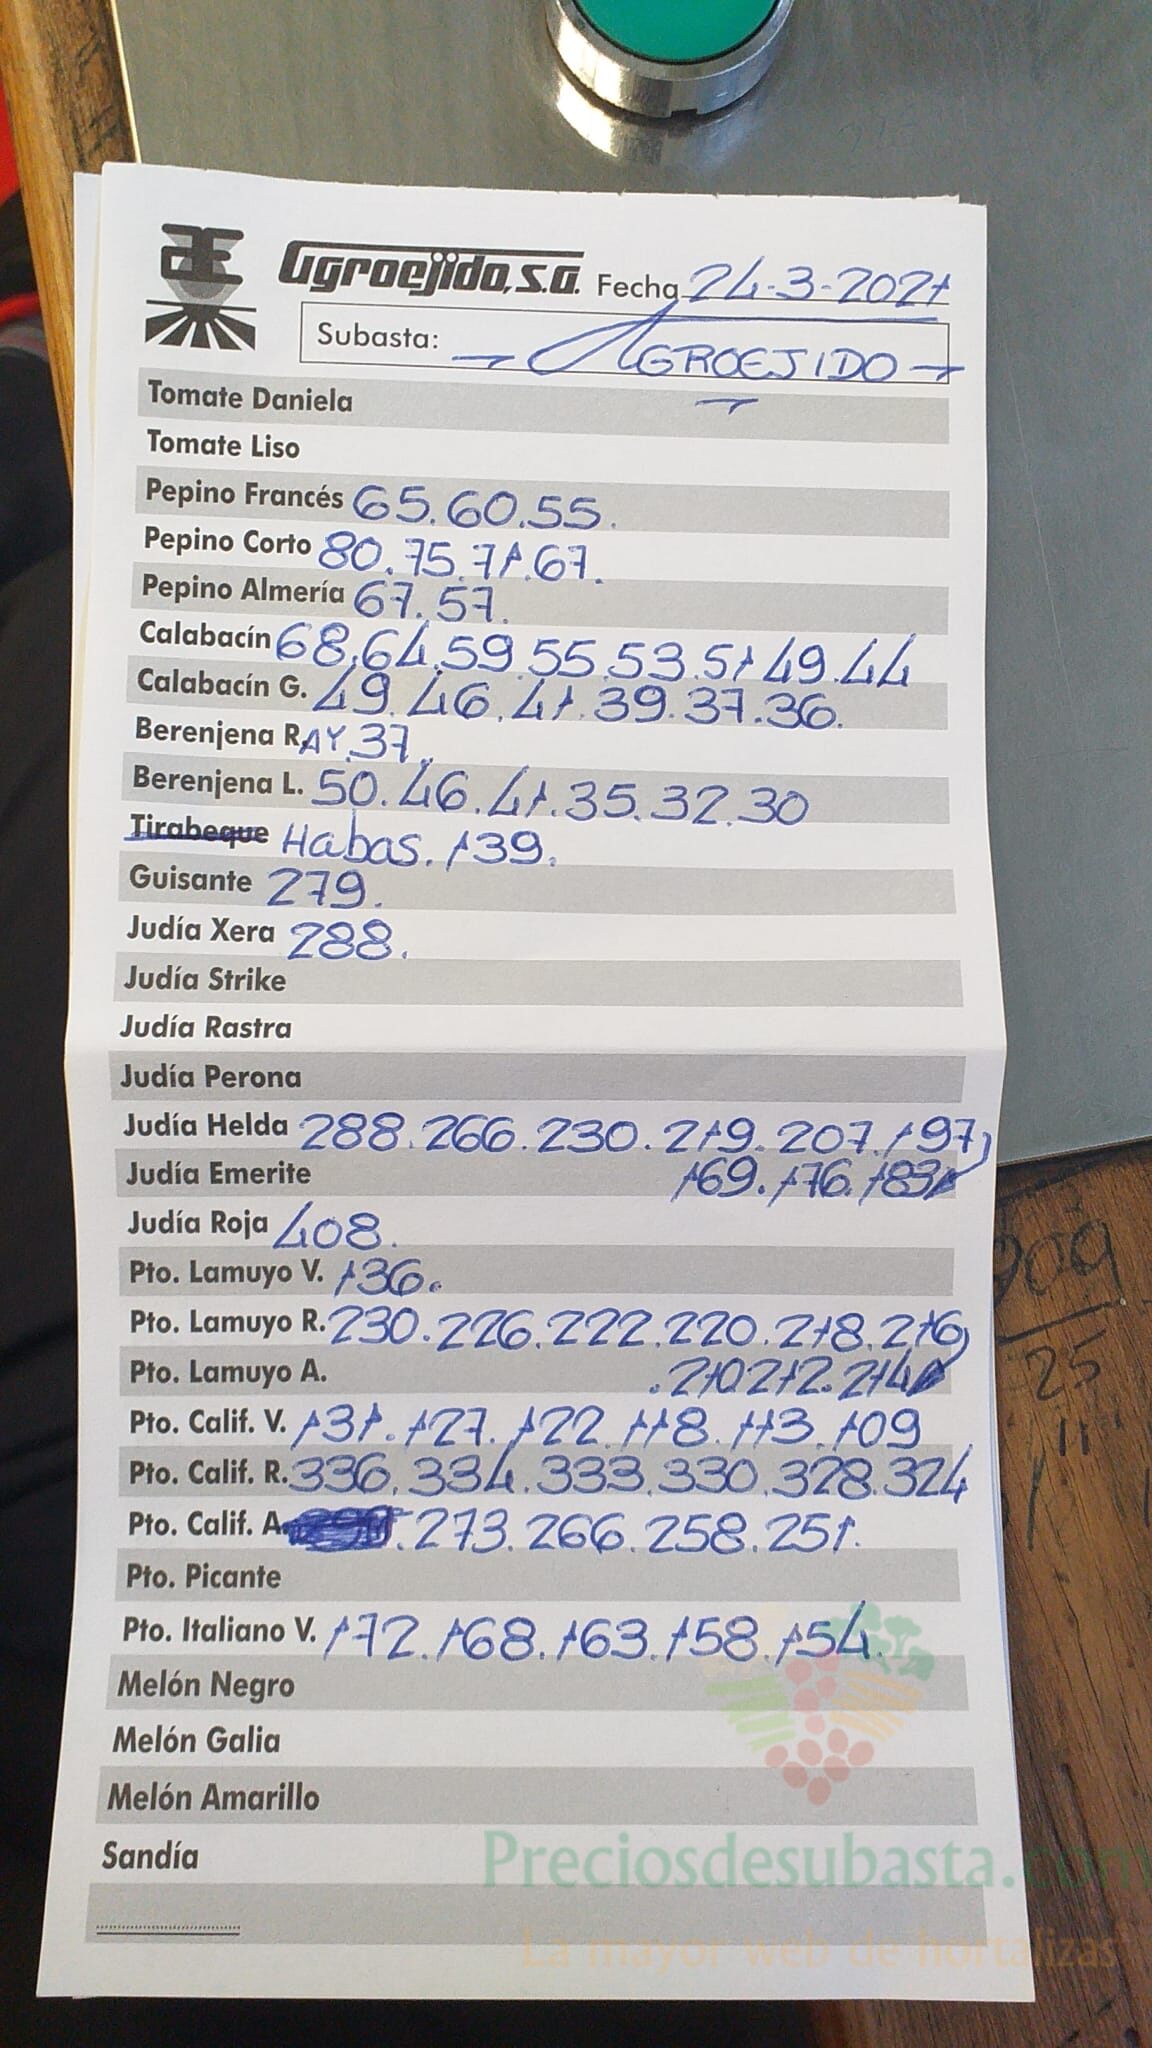 Æ Agroejido, S.A. Fecha 24-3-2021
Subasta: AGROEJIDO
Tomate Daniela
Tomate Liso
Pepino Francés 65.60.55.
Pepino Corto 80.75.71.67.
Pepino Almería 67.57.
Calabacín 68.64.59.55.53.51 49.44
Calabacín G. 49.46.41.39.37.36.
Berenjena RAY.37.
Berenjena L. 50.46.41.35.32.30
Tirabeque Habas. 139.
Guisante 279.
Judía Xera 288.
Judía Strike
Judía Rastra
Judía Perona
Judía Helda 288.266.230.219.207.197
Judía Emerite 169.176.183
Judía Roja 408.
Pto. Lamuyo V. 136.
Pto. Lamuyo R. 230.226.222.220.218.216
Pto. Lamuyo A. .210.212.214
Pto. Calif. V. 131.127.122.118.113.109
Pto. Calif. R. 336.334.333.330.328.324
Pto. Calif. A. .273.266.258.251.
Pto. Picante
Pto. Italiano V. 172.168.163.158.154.
Melón Negro
Melón Galia
Melón Amarillo
Sandía
Preciosdesubasta.com
La mayor web de hortalizas
909
25